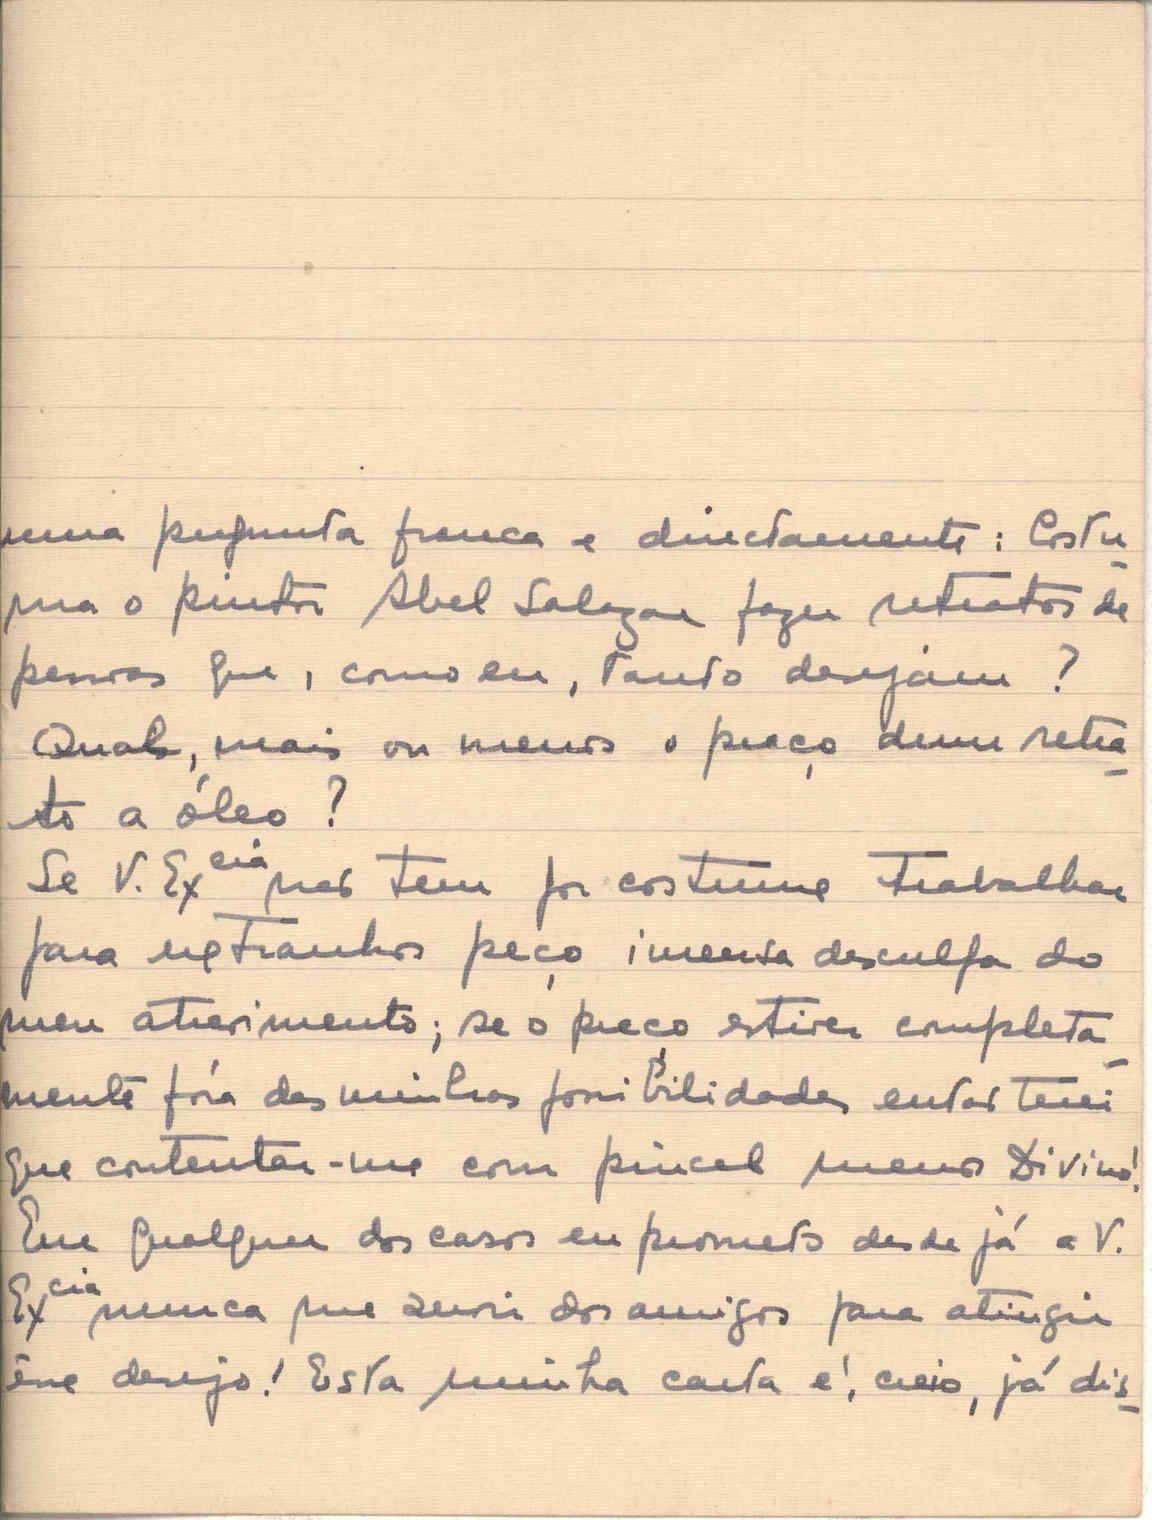 uma pergunta franca e directamente: Costu-
ma o pintor Abel Salazar fazer retratos de
pessoas que, como eu, tanto desejam?
Qual, mais ou menos o preço dum retra-
to a óleo?
Se V. Excia não tem por costume trabalhar
para extranhos peço imensa desculpa do
meu atrevimento; se o preço estiver completa-
mente fóra das minhas possibilidades então terei
que contentar-me com pincel menos Divino!
Em qualquer dos casos eu prometo desde já a V.
Excia nunca me servir dos amigos para atingir
êsse desejo! Esta minha carta é, creio, já dis-